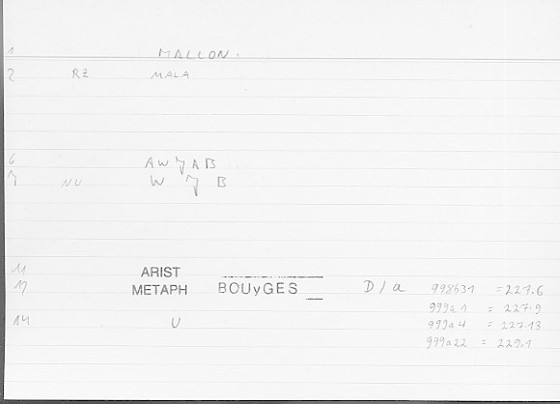 1 MALLON.
2 RZ MALA
6 AW Y A B
7 NU W Y B
11 ARIST
17 METAPH BOUyGES D/a 998b31 = 227.6
999a1 = 227.9
14 U 999a4 = 227.13
999a22 = 229.1